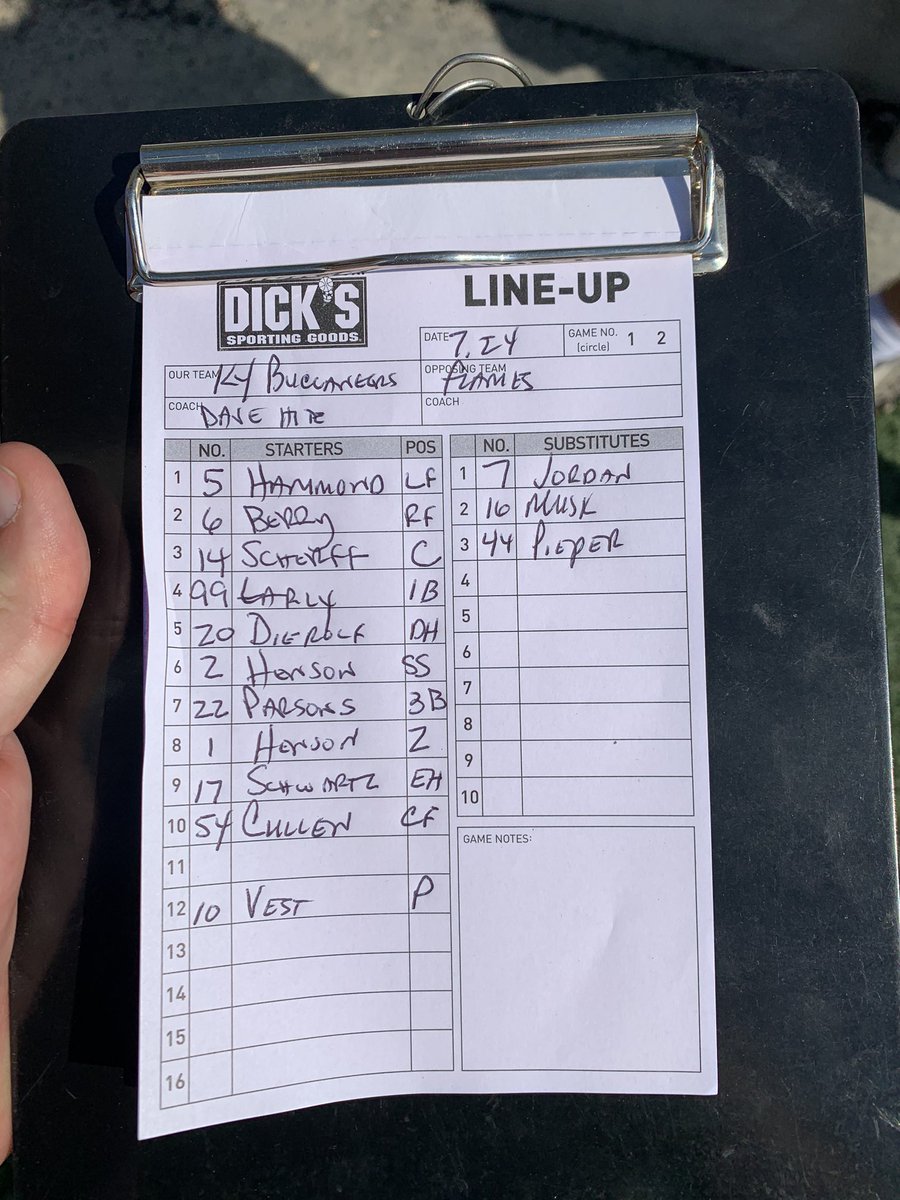 DICK'S
SPORTING GOODS
LINE-UP
DATE 7.24
GAME NO. (circle) 1 2
OUR TEAM KY BUCCANEERS
OPPOSING TEAM FLAMES
COACH DAVE HITE
COACH
NO. STARTERS POS
1 5 HAMMOND LF
2 6 BERRY RF
3 14 SCHERFF C
4 99 EARLY 1B
5 20 DIEROLF DH
6 2 HENSON SS
7 22 PARSONS 3B
8 1 HENSON 2
9 17 SCHWARTZ EH
10 54 CULLEN CF
11
12 10 VEST P
13
14
15
16
NO. SUBSTITUTES
1 7 JORDAN
2 16 MUSK
3 44 PIEPER
4
5
6
7
8
9
10
GAME NOTES: